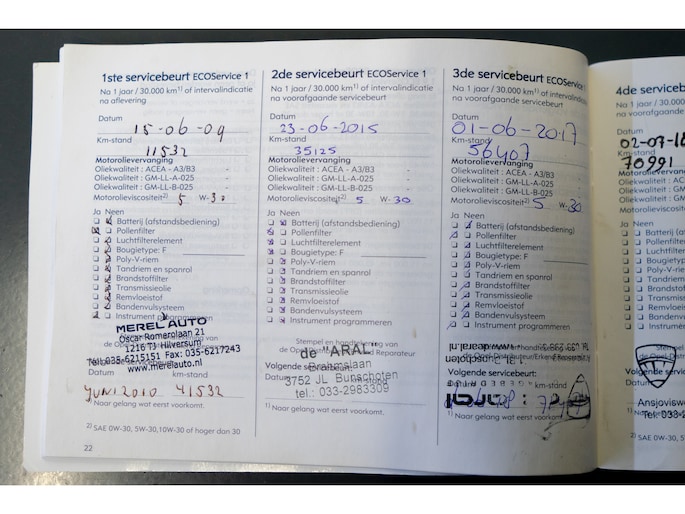 1ste servicebeurt ECOService 1
Na 1 jaar / 30.000 km1) of intervalindicatie
na aflevering
Datum
15-06-09
Km-stand
11532
Motorolievervanging
Oliekwaliteit : ACEA - A3/B3 -
Oliekwaliteit : GM-LL-A-025 -
Oliekwaliteit : GM-LL-B-025 -
Motorolieviscositeit2) 5 W-30
Ja Neen
Batterij (afstandsbediening)
Pollenfilter
Luchtfilterelement
Bougietype: F
Poly-V-riem
Tandriem en spanrol
Brandstoffilter
Transmissieolie
Remvloeistof
Bandenvulsysteem
Instrument programmeren
MEREL AUTO
Oscar Romerolaan 21
1216 TJ Hilversum
Tel: 035-6215151 Fax: 035-6217243
www.merelauto.nl
Volgende servicebeurt:
Datum
juni 2010 41532
1) Naar gelang wat eerst voorkomt.
2) SAE 0W-30, 5W-30,10W-30 of hoger dan 30
22
2de servicebeurt ECOService 1
Na 1 jaar / 30.000 km1) of intervalindicatie
na voorafgaande servicebeurt
Datum
23-06-2015
Km-stand
35125
Motorolievervanging
Oliekwaliteit : ACEA - A3/B3 -
Oliekwaliteit : GM-LL-A-025 -
Oliekwaliteit : GM-LL-B-025 -
Motorolieviscositeit2) 5 W-30
Ja Neen
Batterij (afstandsbediening)
Pollenfilter
Luchtfilterelement
Bougietype: F
Poly-V-riem
Tandriem en spanrol
Brandstoffilter
Transmissieolie
Remvloeistof
Bandenvulsysteem
Instrument programmeren
Stempel en handtekening van
de "ARAL"
Reparateur
3752 JL Bunschoten
tel.: 033-2983309
Volgende servicebeurt:
Datum
1) Naar gelang wat eerst voorkomt.
3de servicebeurt ECOService 1
Na 1 jaar / 30.000 km1) of intervalindicatie
na voorafgaande servicebeurt
Datum
01-06-2017
Km-stand
56407
Motorolievervanging
Oliekwaliteit : ACEA - A3/B3 -
Oliekwaliteit : GM-LL-A-025 -
Oliekwaliteit : GM-LL-B-025 -
Motorolieviscositeit2) 5 W-30
Ja Neen
Batterij (afstandsbediening)
Pollenfilter
Luchtfilterelement
Bougietype: F
Poly-V-riem
Tandriem en spanrol
Brandstoffilter
Transmissieolie
Remvloeistof
Bandenvulsysteem
Instrument programmeren
Volgende servicebeurt:
km-stand
1) Naar gelang wat eerst voorkomt.
4de se
Na 1 jaar / 3
na voorafga
Datum
02-07-18
70991
Motorolie
Oliekwaliteit : AC
Oliekwaliteit : G
Oliekwaliteit : G
Motorolieviscosit
Ja Neen
Batterij
Pollenfil
Luchtfi
Bougie
Poly-V
Tandri
Brand
Transm
Remvl
Bande
Instru
Ansjoviswe
Tel: 033-2
1) Naar gela
2) SAE 0W-30, 5